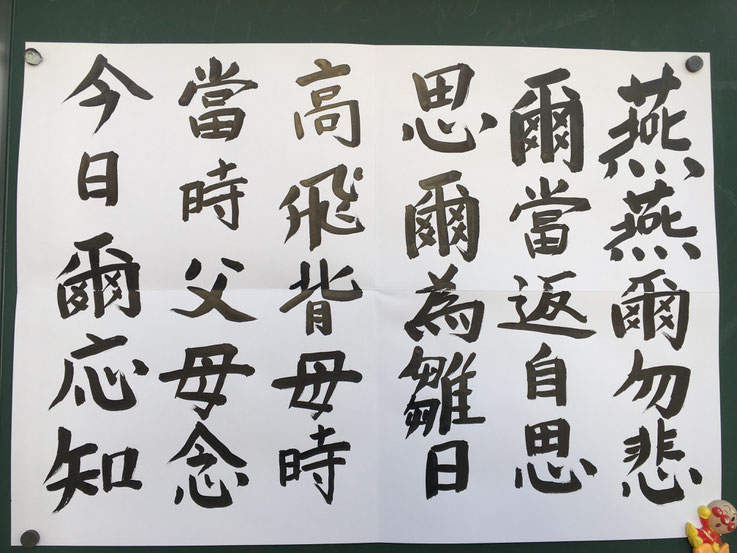 燕燕爾勿悲
爾當返自思
思爾為雛日
高飛背母時
當時父母念
今日爾応知